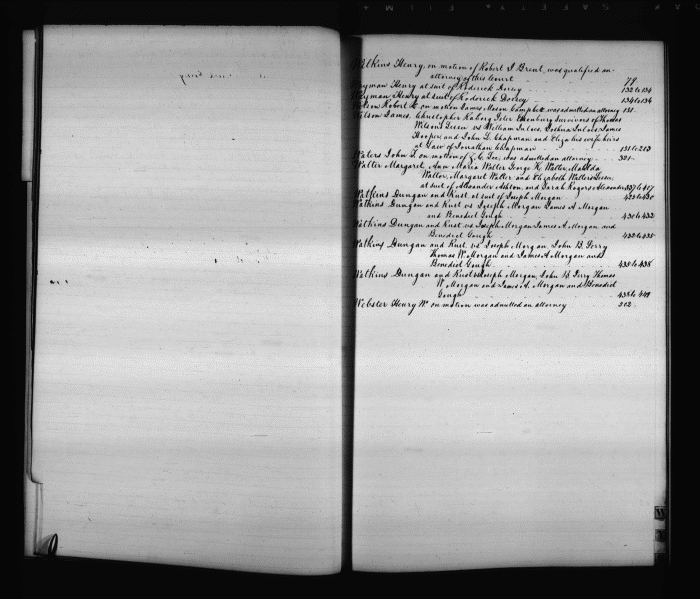 Watkins Henry, on motion of Robert J Brent, was qualified an
attorney of this Court 79
Wayman Henry at suit of Roderick Dorsey 132 to 134
Wayman Henry at suit of Roderick Dorsey 134 to 134
Wilson Robert on motion James Mason Campbell was admitted an attorney 151
Wilson James, Christopher Raborg Peter survivors of Thomas
Wilson vs William Inloes, Joshua Inloes James
Hooper and John L Chapman and Eliza his wife heirs
at Law of Jonathan Chapman 151 to 253
Waters John T. on motion of Z. C. Lee, was admitted an attorney 321
Walter Margaret Ann Maria Walter George K. Walter, Matilda
Walter, Margaret Walter and Elizabeth Walter
at suit of Alexander Aston, and Sarah Rogers Alexander
Watkins Dungan and Rust at suit of Joseph Morgan
Watkins Dungan and Rust vs Joseph Morgan James A Morgan
and Benedict Gough 430 to 432
Watkins Dungan and Rust vs Joseph Morgan James A. Morgan and
Benedict Gough
Watkins Dungan and Rust vs Joseph Morgan, John B. Gerry
Thomas W Morgan and James A Morgan and
Benedict Gough 435 to 438
Watkins Dungan and Rust vs Joseph Morgan, John B Gerry Thomas
W Morgan and James A. Morgan and Benedict
Gough 438 to 441
Webster Henry W. on motion was admitted an attorney 502
W